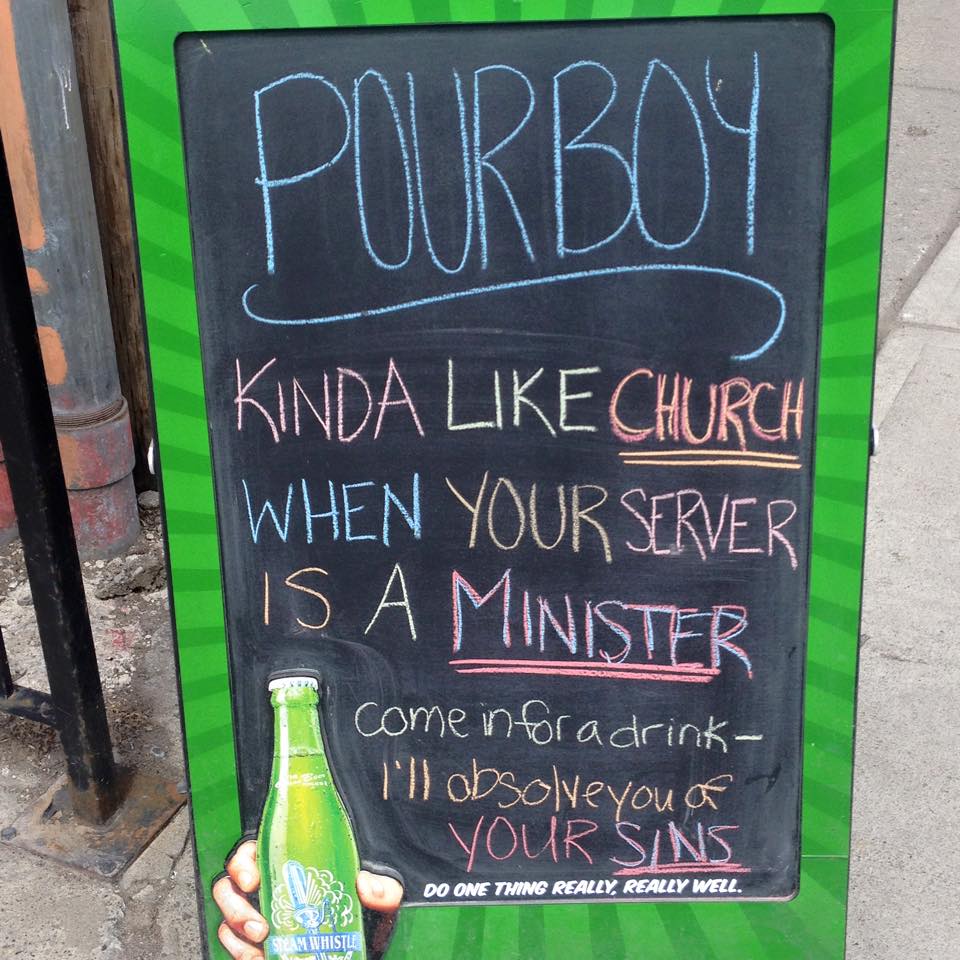 POURBOY
KINDA LIKE CHURCH
WHEN YOUR SERVER
IS A MINISTER
Come in for a drink-
I'll absolve you of
YOUR SINS
DO ONE THING REALLY, REALLY WELL.
STEAM WHISTLE